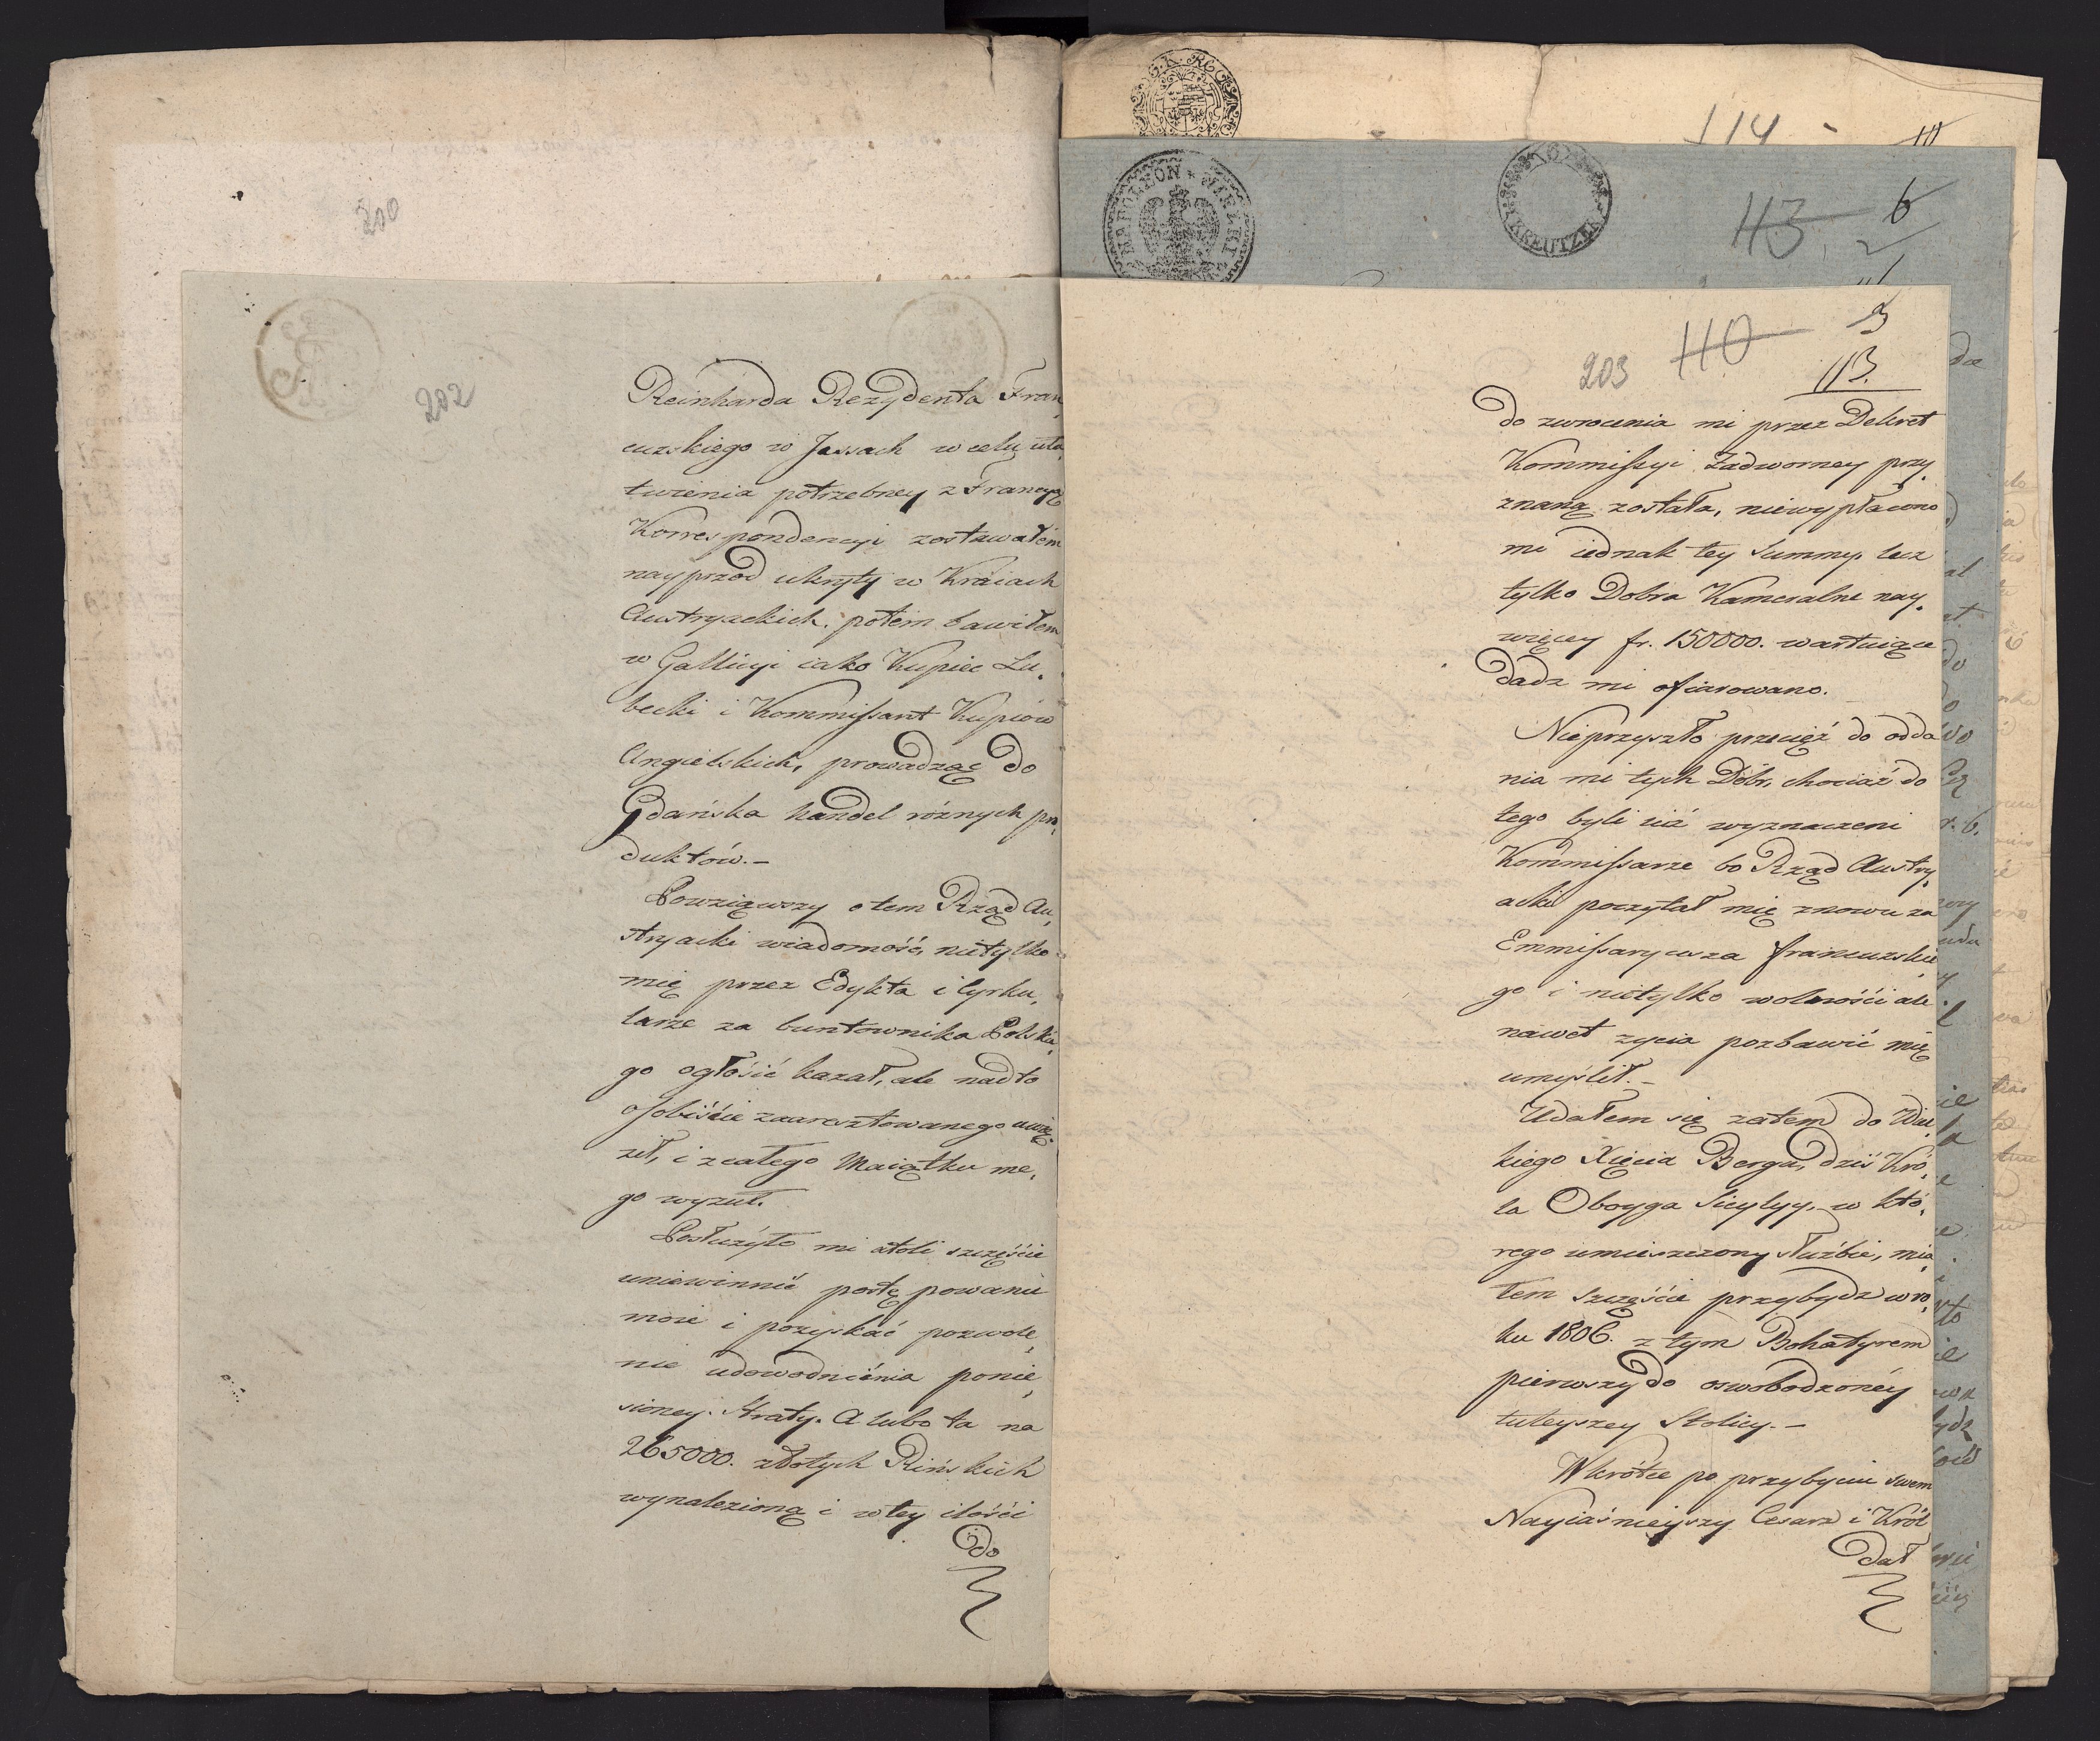 200
202
Reinharda Rezydenta Fran„
cuzskiego w Jassach w celu uła„
twienia potrzebney z Francyą
Korrespondencyi zostawałem
nayprzod ukryty w Kraiach
Austryackich, potem bawiłem
w Gallicyi iako Kupiec Lu„
becki i Kommissant Kupców
Angielskich, prowadząc do
Gdańska handel róźnych pro„
duktów.-
Powziąwszy o tem Rząd Au„
stryacki wiadomość, nietylko
mię przez Edykta i Cyrku„
larze za buntownika Polskie„
go ogłosić kazał, ale nadto
osobiście zaaresztowanego uwię„
ził, i z całego Maiątku me„
go wyzuł.
Posłużyło mi atoli szczęście
uniewinnić postępowanie
moie i pozyskać pozwole„
nie udowodnienia ponie„
sioney straty. A lubo ta na
265000. złotych Rińskich
wynalezioną i w tey ilości
do
G.K. RE
114
10
NAPOLEON
KREUTZER
113
6
2
203
110
3
113.
do zwrocenia mi przez Dekret
Kommissyi Zadworney przy„
znaną została, niewypłacono
mi iednak tey Summy, lecz
tylko Dobra Kameralne nay„
więcey fr. 150000. wartuiące
dadz mi ofiarowano.
Nieprzyszło przecięż do odda„
nia mi tych Dóbr, chociaż do
tego byli iiż wyznaczeni
Kommissarze bo Rząd Austry„
acki poczytał mię znowu za
Emmissaryusza francuzskie„
go i nietylko wolności ale
nawet zycia pozbawić mię
umyślił.-
Udałem się zatem do Wiel„
kiego Xięcia Bergu, dziś Kró„
la Oboyga Sicylyy, w któ„
rego umieszczony służbie, mia„
łem szczęście przybydz w ro„
ku 1806. z tym Bohatyrem
pierwszy do oswobodzonéy
tuteyszey Stolicy.-
Wkrótce po przybyciu swem
Nayiaśnieyszy Cesarz i Król
dał